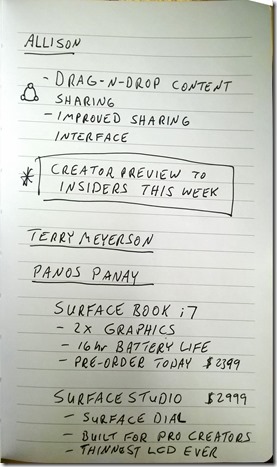 ALLISON
- DRAG-N-DROP CONTENT
SHARING
- IMPROVED SHARING
INTERFACE
* CREATOR PREVIEW TO
INSIDERS THIS WEEK
TERRY MEYERSON
PANOS PANAY
SURFACE BOOK i7
- 2X GRAPHICS
- 16hr BATTERY LIFE
- PRE-ORDER TODAY $2399
SURFACE STUDIO $2999
- SURFACE DIAL
- BUILT FOR PRO CREATORS
- THINNEST LCD EVER